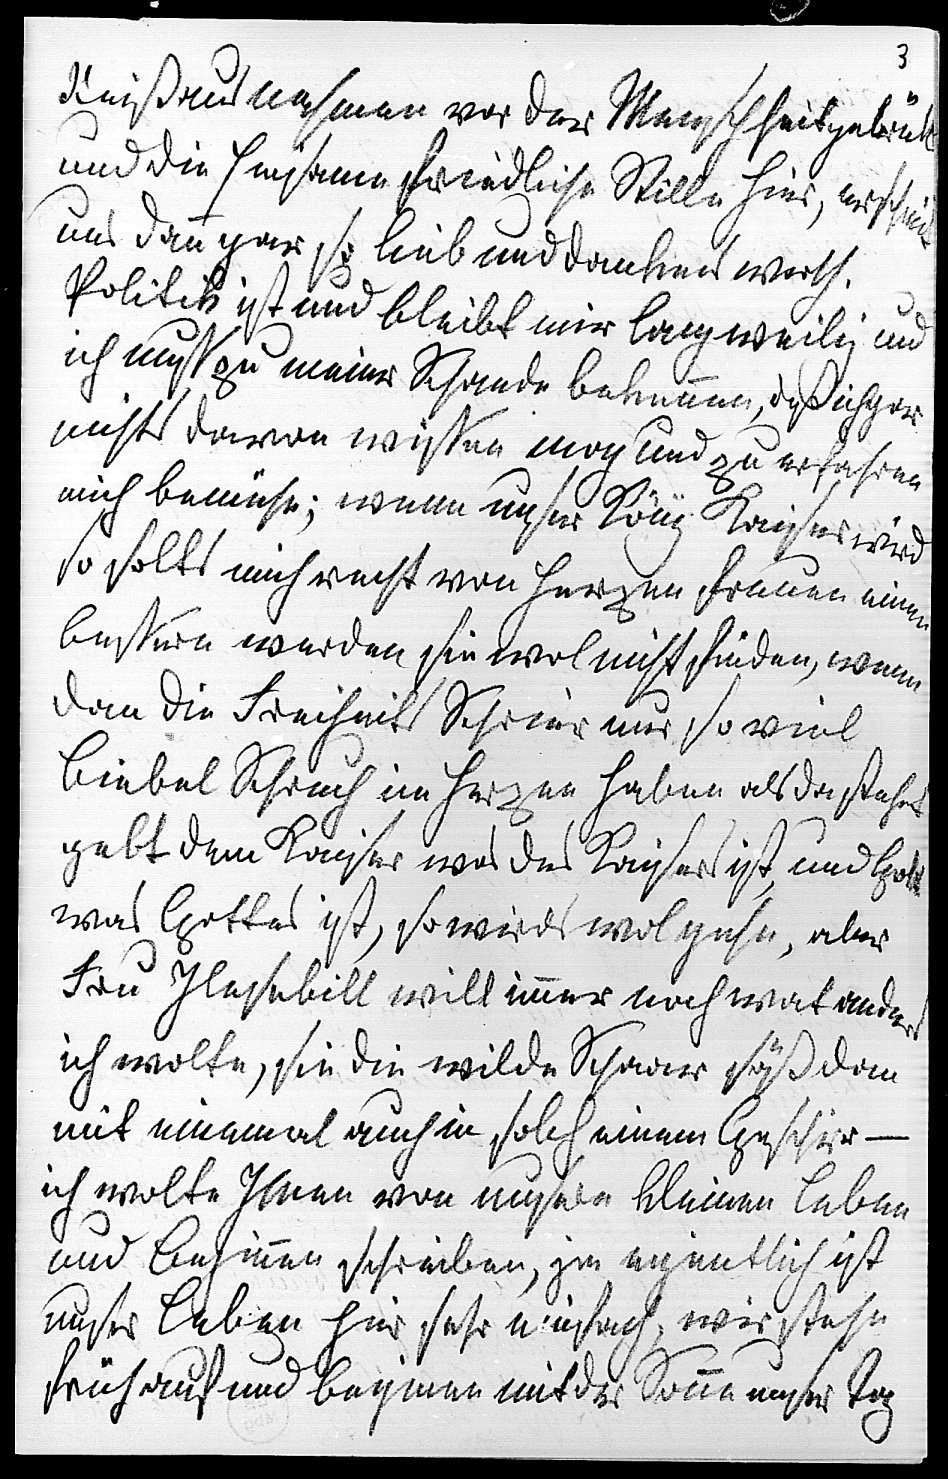 3
Reißaus nehmen vor der Menschheitgebrüll
und die einsame friedliche Stille hier, erscheint
uns dan̄ gar so lieb und dankens werth.
Politik ist und bleibt mir langweilig und
ich muß zu meiner Schande bekennen, daß ich gar
nichts davon wissen mag und zu erfahren
mich bemühe; wenn unser König Kaiser wird
so sollts mich recht von Herzen freuen einen
bessern werden sie wol nicht finden, wenn
dan die Freiheits Schreier nur so viel
Biebel Spruch im Herzen haben als da stehet
gebt dem Kaiser was des Kaisers ist, und Gott
was Gottes ist, so wirds wol gehn, aber
Fru Ilsebill will im̄er noch wat anders
ich wolte, sie die wilde Schaar säß dan
mit einemal auch in solch einem Geschirr —
ich wolte Ihnen von unsern kleinen Leben
und schreiben, ja eigentlich ist
unser Leben hier sehr einfach, wir stehn
früh auf und beginnen mit der Son̄e unser Tag